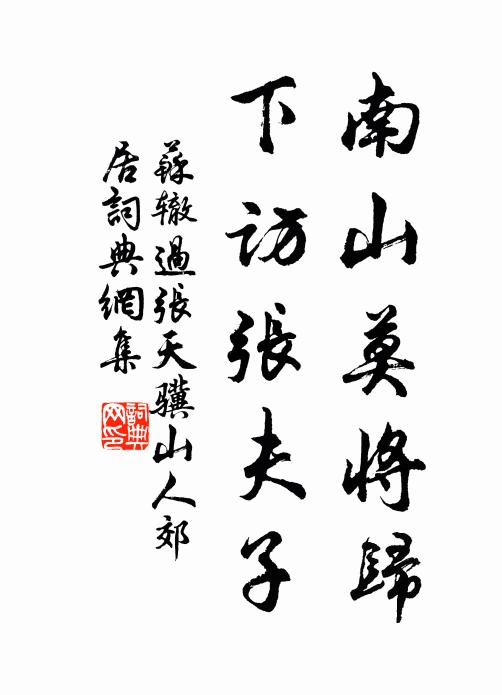 南山莫將歸
下訪張夫子
蘇辙過張天驥山人郊
居詞典網集
詞典
网印